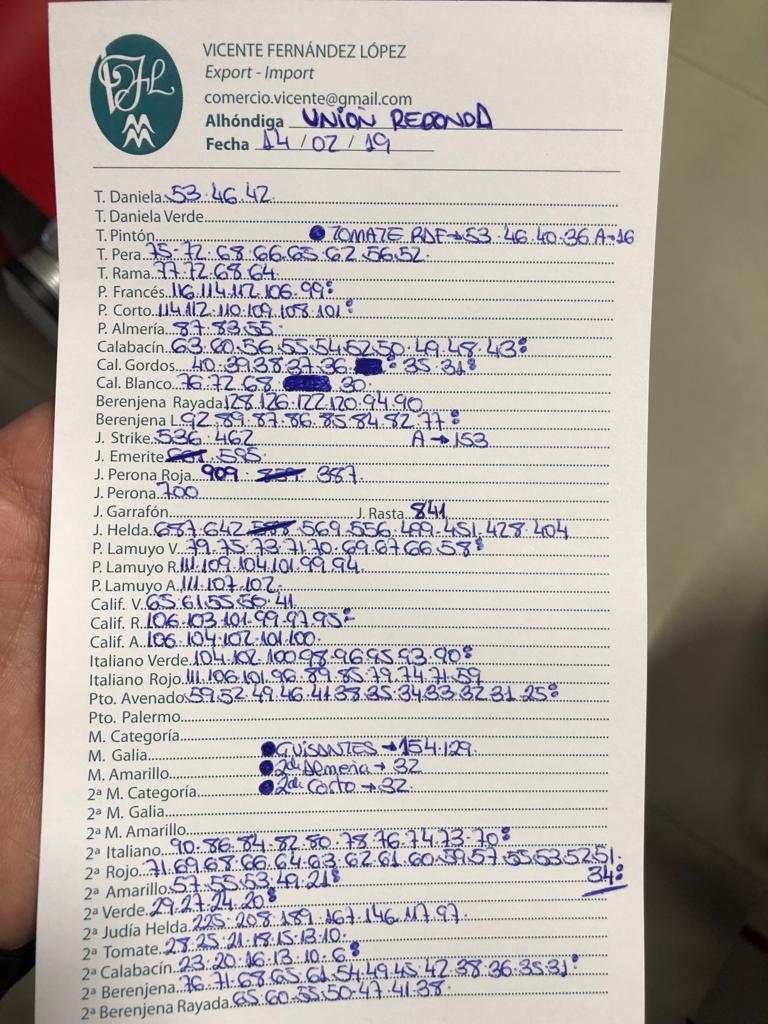 VICENTE FERNÁNDEZ LÓPEZ
Export - Import
comercio.vicente@gmail.com
Alhóndiga UNIÓN REDONDA
Fecha 14/02/19
T. Daniela 53.46.42
T. Daniela Verde
T. Pintón ● TOMATE RAF→53.46.40.36 A→16
T. Pera 75-72.68.66.65.62.56.52.
T. Rama 77.72.68.64.
P. Francés 116.114.112.106.99:
P. Corto 114.112.110.109.108.101:
P. Almería 87.83.55.
Calabacín 63.60.56.55.54.52.50.49.48.43:
Cal. Gordos 40.39.38.37.36 : 35.31:
Cal. Blanco 76.72.68. 30.
Berenjena Rayada 128.126.122.120.94.90
Berenjena L. 92.89.87.86.85.84.82.77:
J. Strike 536.462 A→153
J. Emerite 595.
J. Perona Roja 909. 387.
J. Perona 700
J. Garrafón J. Rasta 841
J. Helda 687.642 569.556.499.451.428.404
P. Lamuyo V. 79.75.73.71.70.69.67.66.58:
P. Lamuyo R. 111.109.104.101.99.94.
P. Lamuyo A. 111.107.102.
Calif. V. 65.61.55.50.41.
Calif. R. 106.103.101.99.97.95:
Calif. A. 106.104.102.101.100.
Italiano Verde 104.102.100.98.96.95.93.90:
Italiano Rojo 111.106.101.96.89.85.79.74.71.59
Pto. Avenado 59.52.49.46.41.38.35.34.33.32.31.25:
Pto. Palermo
M. Categoría
M. Galia ● GUISANTES→154.129.
M. Amarillo ● 2ª de Almeria→32
2ª M. Categoría ● 2ª de Corto→32.
2ª M. Galia
2ª M. Amarillo
2ª Italiano 90.86.84.82.80.78.76.74.73.70:
2ª Rojo 71.69.68.66.64.63.62.61.60.59.57.55.53.52.51.
34:
2ª Amarillo 57.55.53.49.21:
2ª Verde 29.27.24.20:
2ª Judía Helda 225.208.189.167.146.117.97.
2ª Tomate 28.25.21.18.15.13.10.
2ª Calabacín 23.20.16.13.10.6:
2ª Berenjena 76.71.68.65.61.54.49.45.42.38.36.35.31:
2ª Berenjena Rayada 65.60.55.50.47.41.38.